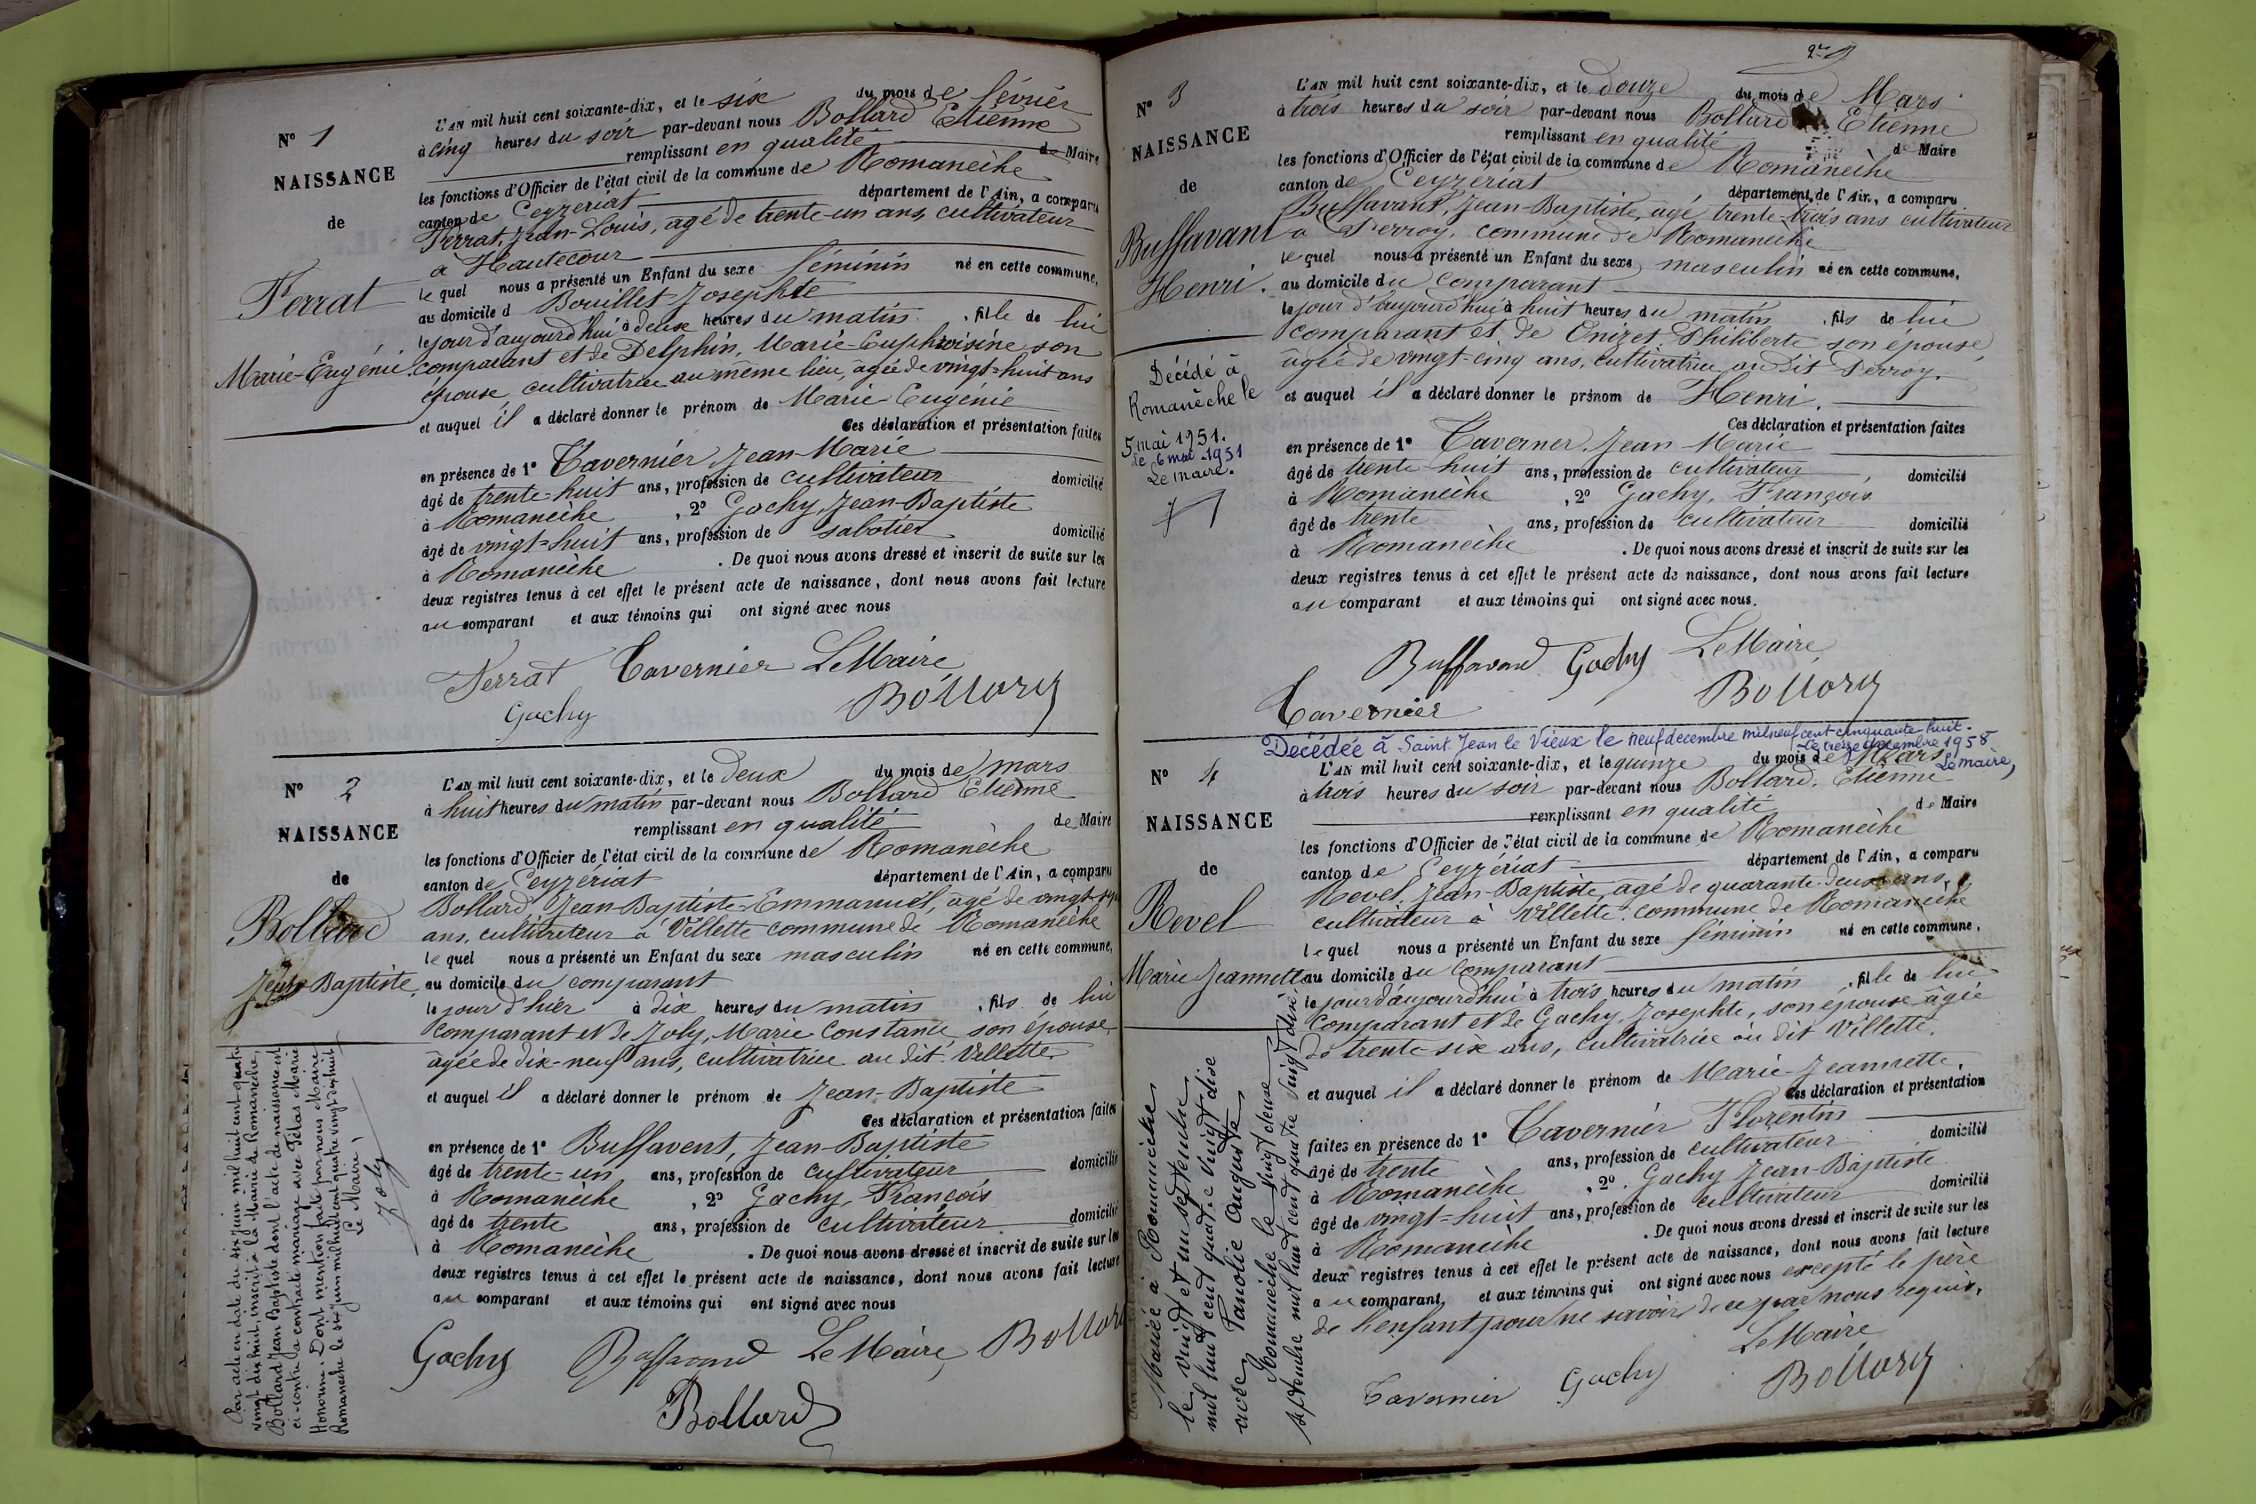 N° 1
NAISSANCE
de
Ferrat
Marie-Eugénie.
L'AN mil huit cent soixante-dix, et le six du mois de février
à cinq heures du soir par-devant nous Bollard Etienne
remplissant en qualité de Maire
les fonctions d'Officier de l'état civil de la commune de Romanèche
canton de Ceyzériat département de l'Ain, a comparu
Ferrat, Jean-Louis, agé de trente-un ans, cultivateur
à Hautecour
lequel nous a présenté un Enfant du sexe féminin né en cette commune,
au domicile d Bouillet Josephte
le jour d'aujourd'hui à deux heures du matin, fille de lui
comparant et de Delphin, Marie-Euphroisine son
épouse cultivatrice au même lieu, âgée de vingt-huit ans
et auquel il a déclaré donner le prénom de Marie Eugénie
Ces déclaration et présentation faites
en présence de 1° Tavernier Jean-Marie
âgé de trente-huit ans, profession de cultivateur domicilié
à Romanèche, 2° Gachy, Jean-Baptiste
âgé de vingt-huit ans, profession de sabotier domicilié
à Romanèche. De quoi nous avons dressé et inscrit de suite sur les
deux registres tenus à cet effet le présent acte de naissance, dont nous avons fait lecture
au comparant et aux témoins qui ont signé avec nous
Ferrat Tavernier Le Maire
Gachy Bollard
N° 2
NAISSANCE
de
Bollard
Jean-Baptiste.
L'AN mil huit cent soixante-dix, et le deux du mois de mars
à huit heures du matin par-devant nous Bollard Etienne
remplissant en qualité de Maire
les fonctions d'Officier de l'état civil de la commune de Romanèche
canton de Ceyzériat département de l'Ain, a comparu
Bollard, Jean-Baptiste-Emmanuel, âgé de vingt-sept
ans, cultivateur à Villette commune de Romanèche
lequel nous a présenté un Enfant du sexe masculin né en cette commune,
au domicile du comparant
le jour d'hier à dix heures du matin, fils de lui
comparant et de Joly, Marie Constance, son épouse,
âgée de dix-neuf ans, cultivatrice au dit Villette
et auquel il a déclaré donner le prénom de Jean-Baptiste
Ces déclaration et présentation faites
en présence de 1° Buffavent, Jean-Baptiste
âgé de trente-un ans, profession de cultivateur domicilié
à Romanèche, 2° Gachy, François
âgé de trente ans, profession de cultivateur domicilié
à Romanèche. De quoi nous avons dressé et inscrit de suite sur les
deux registres tenus à cet effet le présent acte de naissance, dont nous avons fait lecture
au comparant et aux témoins qui ont signé avec nous
Gachy Buffavand Le Maire Bollard
Bollard
Par acte en date du six juin mil huit cent quatre
vingt dix huit, inscrit à la Mairie de Romanèche,
Bollard Jean Baptiste dont l'acte de naissance est
ci-contre a contracté mariage avec Félas Marie
Honorine. Dont mention faite par nous Maire
Romanèche le six juin mil huit cent quatre vingt dix huit
Le Maire
Joly
N° 3
NAISSANCE
de
Buffavant
Henri.
Décédé à
Romanèche le
5 mai 1951.
Le 6 mai 1951
Le maire.
L'AN mil huit cent soixante-dix, et le douze du mois de Mars
à trois heures du soir par-devant nous Bollard Etienne
remplissant en qualité de Maire
les fonctions d'Officier de l'état civil de la commune de Romanèche
canton de Ceyzériat département de l'Ain, a comparu
Buffavant, Jean-Baptiste, agé trente-trois ans cultivateur
a Perroy, commune de Romanèche
lequel nous a présenté un Enfant du sexe masculin né en cette commune,
au domicile du comparant
le jour d'aujourd'hui à huit heures du matin, fils de lui
comparant et de Philiberte son épouse,
âgée de vingt-cinq ans, cultivatrice au dit Perroy.
et auquel il a déclaré donner le prénom de Henri.
Ces déclaration et présentation faites
en présence de 1° Taverner Jean Marie
âgé de trente-huit ans, profession de cultivateur domicilié
à Romanèche, 2° Gachy, François
âgé de trente ans, profession de cultivateur domicilié
à Romanèche. De quoi nous avons dressé et inscrit de suite sur les
deux registres tenus à cet effet le présent acte de naissance, dont nous avons fait lecture
au comparant et aux témoins qui ont signé avec nous.
Buffavand Gachy Le Maire
Tavernier Bollard
Décédée à Saint Jean le Vieux le neuf decembre mil neuf cent cinquante huit.
Le treize décembre 1958
Le maire,
N° 4
NAISSANCE
de
Revel
Marie Jeannette
L'AN mil huit cent soixante-dix, et le quinze du mois de Mars
à trois heures du soir par-devant nous Bollard, Etienne
remplissant en qualité de Maire
les fonctions d'Officier de l'état civil de la commune de Romanèche
canton de Ceyzériat département de l'Ain, a comparu
Revel, Jean-Baptiste, agé de quarante-deux ans,
cultivateur à Villette, commune de Romanèche
lequel nous a présenté un Enfant du sexe féminin né en cette commune,
au domicile du comparant
le jour d'aujourd'hui à trois heures du matin, fille de lui
comparant et de Gachy, Josephte, son épouse âgée
de trente-six ans, cultivatrice au dit Villette.
et auquel il a déclaré donner le prénom de Marie-Jeannette.
Ces déclaration et présentation
faites en présence de 1° Tavernier Florentin
âgé de trente ans, profession de cultivateur domicilié
à Romanèche, 2° Gachy Jean-Baptiste
âgé de vingt-huit ans, profession de cultivateur domicilié
à Romanèche. De quoi nous avons dressé et inscrit de suite sur les
deux registres tenus à cet effet le présent acte de naissance, dont nous avons fait lecture
au comparant, et aux témoins qui ont signé avec nous excepté le père
de l'enfant pour ne savoir de ce par nous requis.
Le Maire
Tavernier Gachy Bollard
Mariée à Romanèche
le vingt et un septembre
mil huit cent quatre vingt dix
avec Auguste
Romanèche le vingt deux
septembre mil huit cent quatre vingt dix.